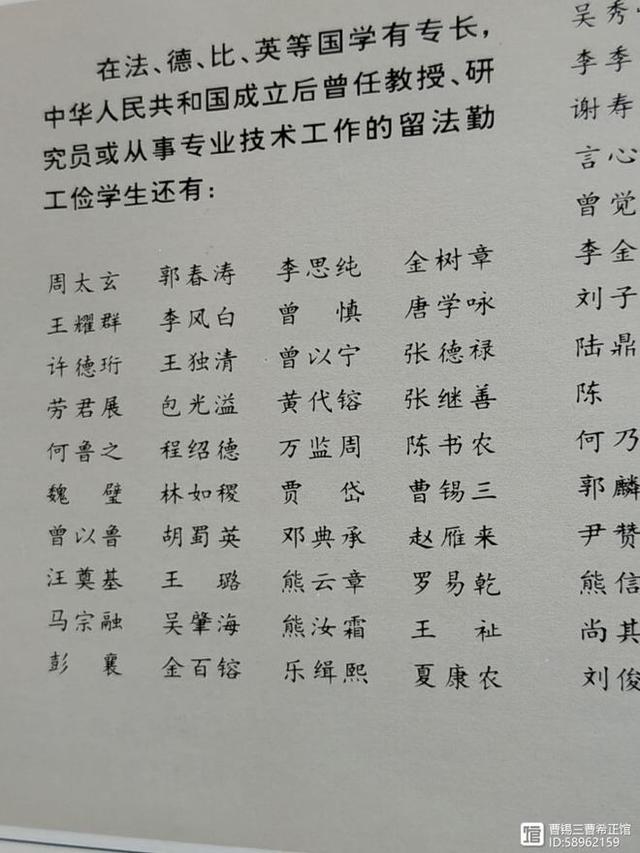 在法、德、比、英等国学有专长，
中华人民共和国成立后曾任教授、研
究员或从事专业技术工作的留法勤
工俭学生还有：
周太玄 郭春涛 李思纯 金树章
王耀群 李风白 曾 慎 唐学咏
许德珩 王独清 曾以宁 张德禄
劳君展 包光溢 黄代镕 张继善
何鲁之 程绍德 万监周 陈书农
魏 璧 林如稷 贾 岱 曹锡三
曾以鲁 胡蜀英 邓典承 赵雁来
汪奠基 王 璐 熊云章 罗易乾
马宗融 吴肇海 熊汝霜 王 祉
彭 襄 金百镕 乐缉熙 夏康农
吴秀
李季
谢寿
言心
曾觉
李金
刘子
陆鼎
陈
何乃
郭麟
尹赞
熊信
尚其
刘俊
曹锡三曹希正馆
ID:58962159